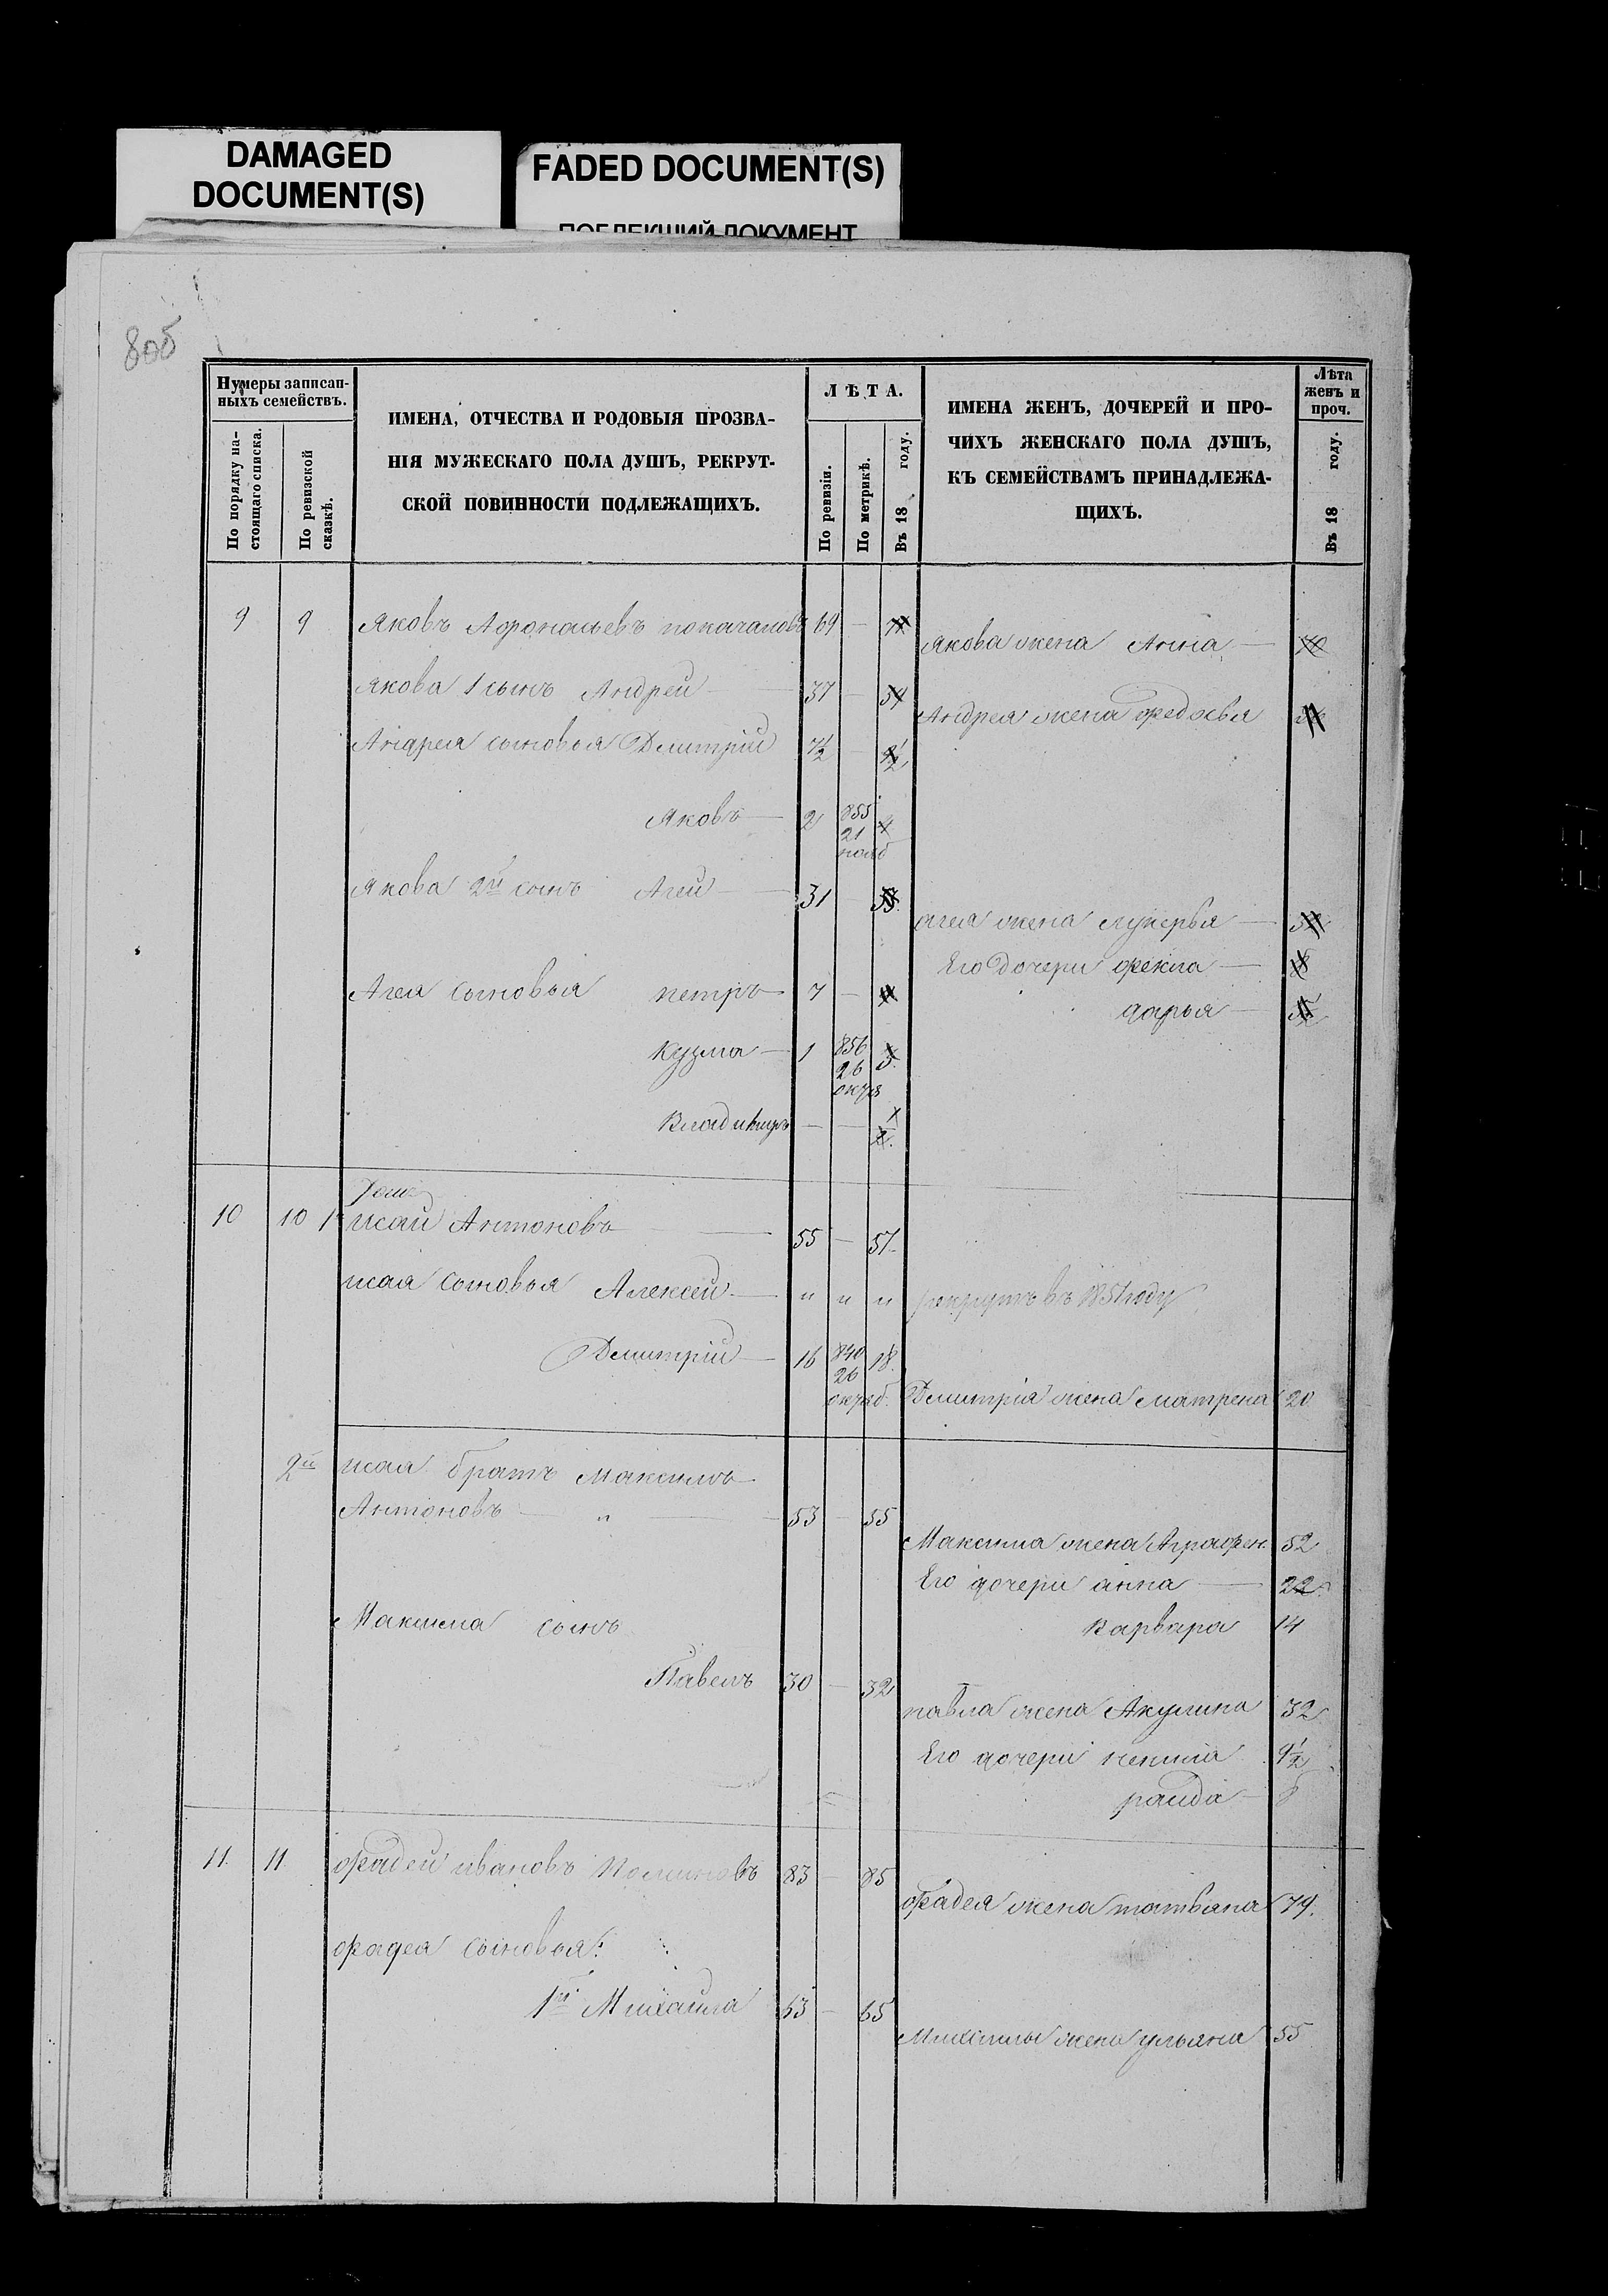 DAMAGED
DOCUMENT(S)
FADED DOCUMENT(S)
ПОБЛЕКШИЙ ДОКУМЕНТ
80б
Нумеры записан-
ныхъ семействъ.
По порядку на-
стоящаго списка.
По ревизской
сказкѣ.
ИМЕНА, ОТЧЕСТВА И РОДОВЫЯ ПРОЗВА-
НІЯ МУЖЕСКАГО ПОЛА ДУШЪ, РЕКРУТ-
СКОЙ ПОВИННОСТИ ПОДЛЕЖАЩИХЪ.
ЛѢТА.
По ревизіи.
По метрикѣ.
Въ 18 году.
ИМЕНА ЖЕНЪ, ДОЧЕРЕЙ И ПРО-
ЧИХЪ ЖЕНСКАГО ПОЛА ДУШЪ,
КЪ СЕМЕЙСТВАМЪ ПРИНАДЛЕЖА-
ЩИХЪ.
Лѣта
женъ и
проч.
Въ 18 году.
9 9 Яковъ Афонасьевъ 69 —
Якова жена Анна —
Якова 1 сынъ Андрей — 37 —
Андрея жена Федосья
Андрея сыновья Дмитрій 7½ —
Яковъ — 2 855
21
нояб
Якова 2й сынъ Агей — 31 —
Агея жена Лукерья —
Его дочери Фекла —
Агея сыновья Петръ 7 —
Дарья —
Кузма — 1 856
26
Владимиръ — —
10 10 1 Исай Антоновъ — 55 — 57.
Исая сыновья Алексей — " " " рекрутъ въ 1851 году
Дмитрій — 16 840 18.
26
Дмитрія жена Матрена 20
2й Исая братъ Максимъ
Антоновъ — " — 53 — 55
Максима жена Аграфен. 52
Его дочери Анна — 22
Максима сынъ
Варвара 14
Павелъ 30 — 32
Павла жена Акулина 32
Его дочери 9½
11. 11. Фадей Ивановъ 83 — 85
Фадея жена Татьяна 79.
Фадея сыновья:
1й Михайла 63 — 65
Михайлы жена Ульяна 55